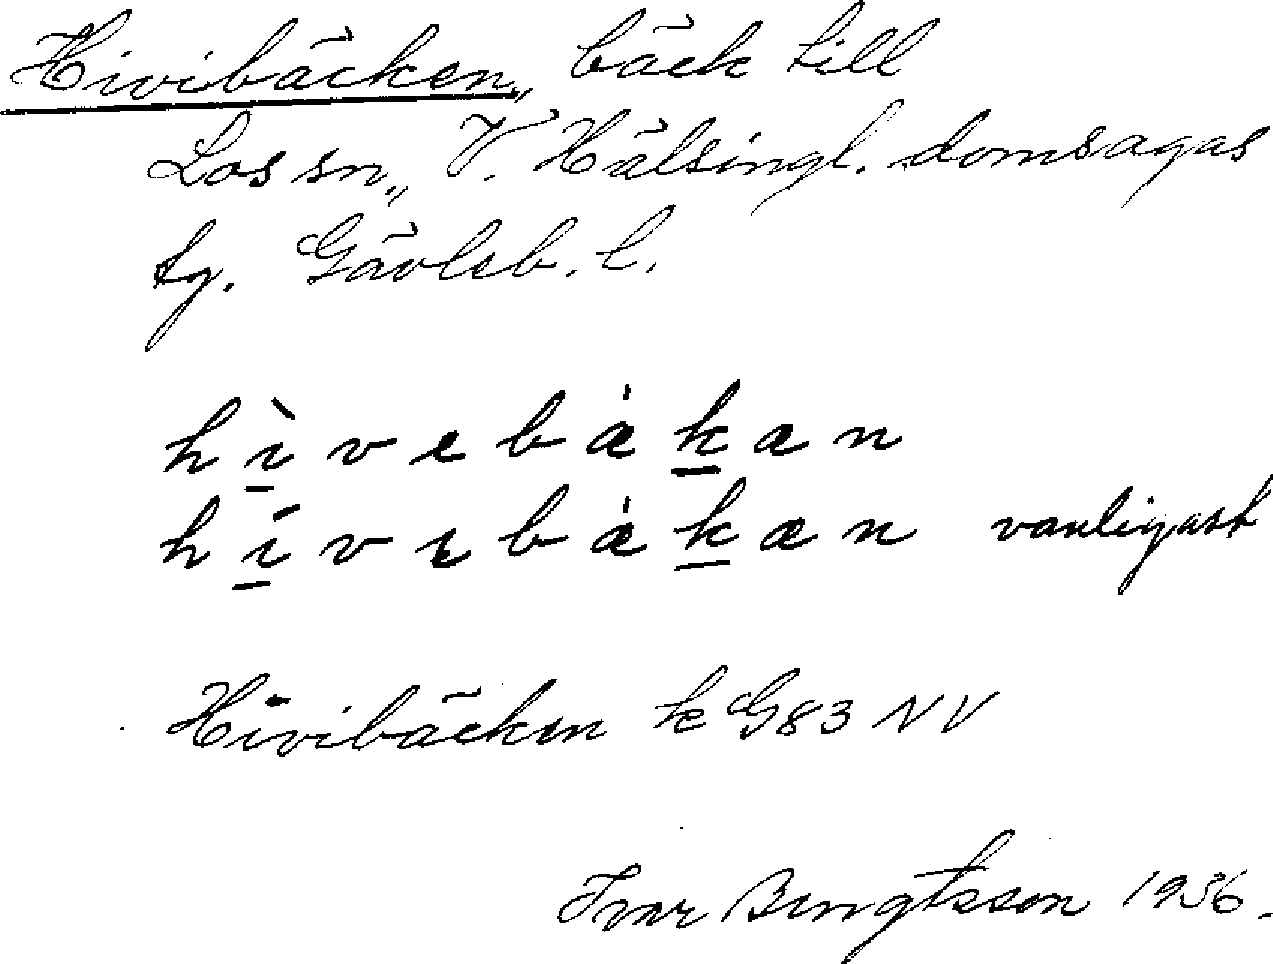 Hivibäcken, bäck till
Los sn, V. Hälsingl. domsagas
tg. Gävleb. l.
hì̲vebȧk̲an
hí̲vɩbȧk̲an vanligast
Hivibäcken k G83 NV
Ivar Bengtsson 1936.